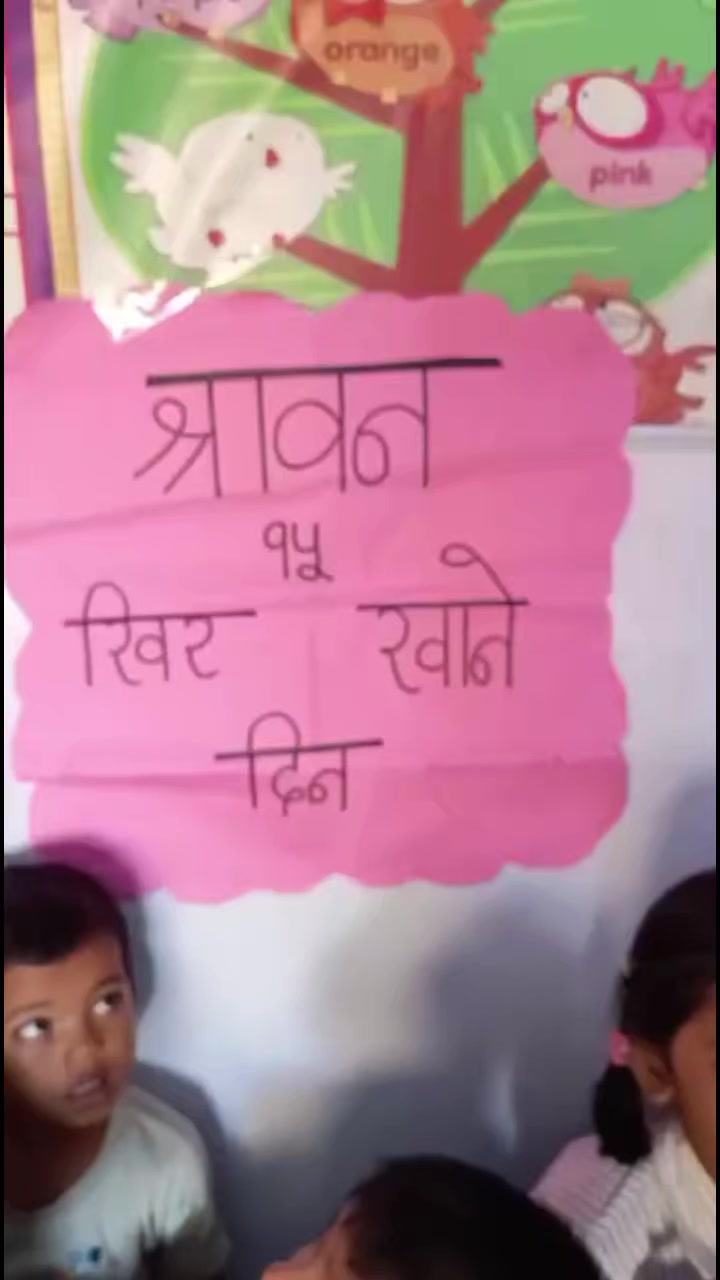 orange
pink
श्रावन
१५
खिर खाने
दिन